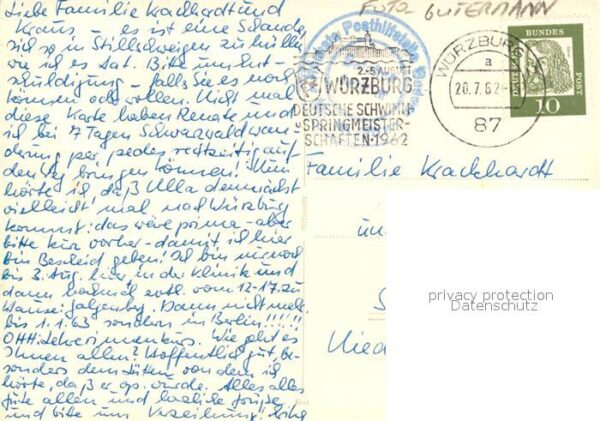 Liebe Familie Krachhardt und
Kraus, – es ist eine Schande
sich so in Stillschweigen zu hüllen
wie ich es tat. Bitte um Ent-
schuldigung – falls Sie es noch
können oder wollen. Nicht mal
diese Karte haben Renate und
ich bei 7 Tagen Schwarzwaldwan-
derung per pedes rechtzeitig auf
den Weg bringen können! Nun
hörte ich, daß Ulla demnächst
vielleicht mal nach Würzburg
kommt: das wäre prima – aber
bitte kurz vorher – damit ich hier
bin Bescheid geben! Ich bin nur noch
bis 3. Aug. hier in der Klinik und
dann vom 12.-17. zu
Dann nicht mehr
bis 1.1.63 sondern in Berlin!!!!!
Wie geht es
Ihnen allen? Hoffentlich gut, be-
sonders dem von dem ich
hörte, daß er op. wurde. Alles alles
gute allen und herzliche Grüße,
und bitte um Verzeihung! Ihre
FOTO GUTERMANN
2.-5. AUGUST
WÜRZBURG
DEUTSCHE SCHWIMM-
u. SPRINGMEISTER-
SCHAFTEN · 1962
WÜRZBURG
a
20.7.62
87
DEUTSCHE BUNDESPOST
10
Familie Krachhardt
privacy protection
Datenschutz